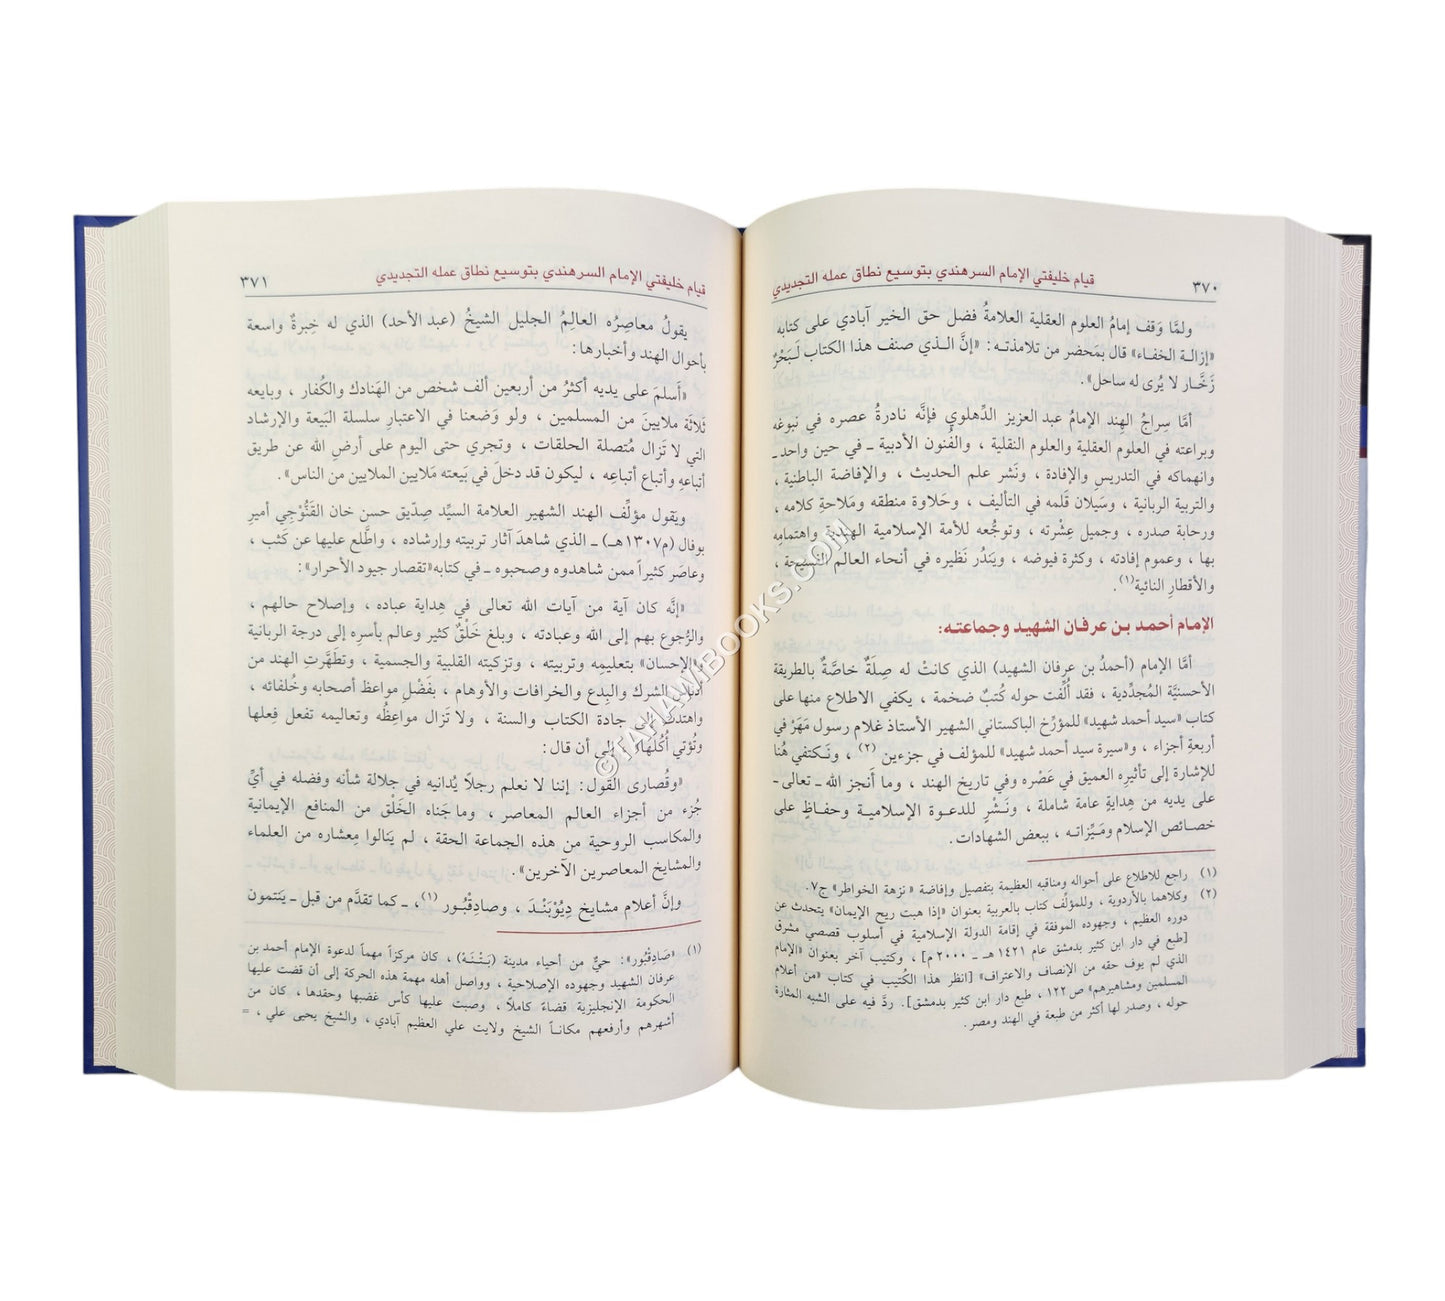 ٣٧٠
قيام خليفتي الإمام السرهندي بتوسيع نطاق عمله التجديدي
ولمَّا وَقف إمامُ العلوم العقلية العلامةُ فضل حق الخير آبادي على كتابه
«إزالـة الخفـاء» قال بمَحضر من تلامذتـه: «إنَّ الـذي صنف هذا الكتاب لَبَحْرٌ
زَخَّـار لا يُرى له ساحل».
أمَّا سِراجُ الهند الإمامُ عبد العزيز الدِّهلوي فإنَّه نادرةُ عصره في نبوغه
وبراعته في العلوم العقلية والعلوم النقلية ، والفُنون الأدبية ـ في حين واحد ـ
وانهماكه في التدريسِ والإفادة ، ونَشر علم الحديث ، والإفاضة الباطنية ،
والتربية الربانية ، وسَيلان قَلمه في التأليف ، وحَلاوة منطقه ومَلاحةِ كلامه ،
ورحابة صدره ، وجميل عِشْرته ، وتوجُّعه للأمة الإسلامية الهندية واهتمامِه
بها ، وعموم إفادته ، وكثرة فيوضه ، ويَندُر نَظيره في أنحاء العالم الفسيحة ،
والأقطارِ النائية(١).
الإمام أحمد بن عرفان الشهيد وجماعته:
أمَّا الإمام (أحمدُ بن عرفان الشهيد) الذي كانتْ له صِلَةٌ خاصَّةٌ بالطريقة
الأحسنيَّة المُجدِّدية ، فقد أُلِّفت حوله كُتبٌ ضخمة ، يكفي الاطلاع منها على
كتاب «سيد أحمد شهيد» للمؤرِّخ الباكستاني الشهير الأستاذ غلام رسول مَهْرْ في
أربعةِ أجزاء ، و«سيرة سيد أحمد شهيد» للمؤلف في جزءين (٢) ، ونَـكتفي هُنا
للإشارة إلى تأثيره العميق في عَصْره وفي تاريخ الهند ، وما أَنجز الله ـ تعالى ـ
على يديه من هِدايةٍ عامة شاملة ، ونَشْرٍ للدعـوة الإسلاميـة وحفـاظٍ على
خصـائص الإسلام ومَيِّزاتـه ، ببعض الشهادات.
(١) راجع للاطلاع على أحواله ومناقبه العظيمة بتفصيل وإفاضة «نزهة الخواطر» ج٧.
(٢) وكلاهما بالأردوية ، وللمؤلف كتاب بالعربية بعنوان «إذا هبت ريح الإيمان» يتحدث عن
دوره العظيم ، وجهوده الموفقة في إقامة الدولة الإسلامية في أسلوب قصصي مشرق
[طبع في دار ابن كثير بدمشق عام ١٤٢١ هـ ـ ٢٠٠٠ م] ، وكتيب آخر بعنوان «الإمام
الذي لم يوف حقه من الإنصاف والاعتراف» [انظر هذا الكُتيب في كتاب «من أعلام
المسلمين ومشاهيرهم» ص ١٢٢ ، طبع دار ابن كثير بدمشق]. ردَّ فيه على الشبه المثارة
حوله ، وصدر لها أكثر من طبعة في الهند ومصر.
قيام خليفتي الإمام السرهندي بتوسيع نطاق عمله التجديدي
٣٧١
يقولُ معاصِرُه العالِمُ الجليل الشيخُ (عبد الأحد) الذي له خِبرةٌ واسعة
بأحوال الهند وأخبارها:
«أَسلمَ على يديه أكثرُ من أربعين ألف شخص من الهَنادك والكُفار ، وبايعه
ثلاثة ملايينَ من المسلمين ، ولو وَضعنا في الاعتبارِ سلسلة البَيعة والإرشاد
التي لا تَزال مُتصلة الحلقات ، وتجري حتى اليوم على أرضِ الله عن طريق
أتباعهِ وأتباع أتباعِه ، ليكون قد دخلَ في بَيعته مَلايين الملايين من الناس».
ويَقول مؤلِّف الهند الشهير العلامة السيِّد صِدِّيق حسن خان القَنُّوْجي أمير
بوفال (م١٣٠٧هـ) ـ الذي شاهدَ آثار تربيته وإرشاده ، واطَّلع عليها عن كَثب ،
وعاصَر كثيراً ممن شاهدوه وصحبوه ـ في كتابه«تقصار جيود الأحرار»:
«إنَّه كان آية من آيات الله تعالى في هِداية عباده ، وإصلاح حالهم ،
والرُّجوع بهم إلى الله وعبادته ، وبلغ خَلْقٌ كثير وعالم بأسرِه إلى درجة الربانية
و«الإحسان» بتعليمِه وتربيته ، وتزكيته القلبية والجسمية ، وتطَهَّرتِ الهند من
أدناس الشرك والبِدع والخرافات والأوهام ، بفَضْلِ مواعظ أصحابه وخُلفائه ،
واهتدت إلى جادة الكتاب والسنة ، ولا تَزال مواعِظُه وتعاليمه تفعل فِعلها
وتُؤتي أُكُلَها» إلى أن قال:
«وقُصارى القَول: إننا لا نعلم رجلاً يُدانيه في جلالة شأنه وفضله في أيِّ
جُزء من أجزاء العالم المعاصر ، وما جَناه الخَلْق من المنافع الإيمانية
والمكاسب الروحية من هذه الجماعة الحقة ، لم يَنالوا مِعشاره من العلماء
والمشايخ المعاصرين الآخرين».
وإنَّ أعلام مشايخ دِيُوْبَنْـدَ ، وصادِقْبُـور (١)، ـ كما تقدَّم من قبل ـ يَنتمون
(١) «صَادِقْبُور»: حيٌّ من أحياء مدينة (بَتْنَة) ، كان مركزاً مهماً لدعوة الإمام أحمد بن
عرفان الشهيد وجهوده الإصلاحية ، وواصل أهله مهمة هذه الحركة إلى أن قضت عليها
الحكومة الإنجليزية قضاءً كاملاً ، وصبت عليها كأس غضبها وحقدها ، كان من
أشهرهم وأرفعهم مكانـاً الشيخ ولايت علي العظيم آبادي ، والشيخ يحيى علي ، =
©TAHAMIBOOKS.COM